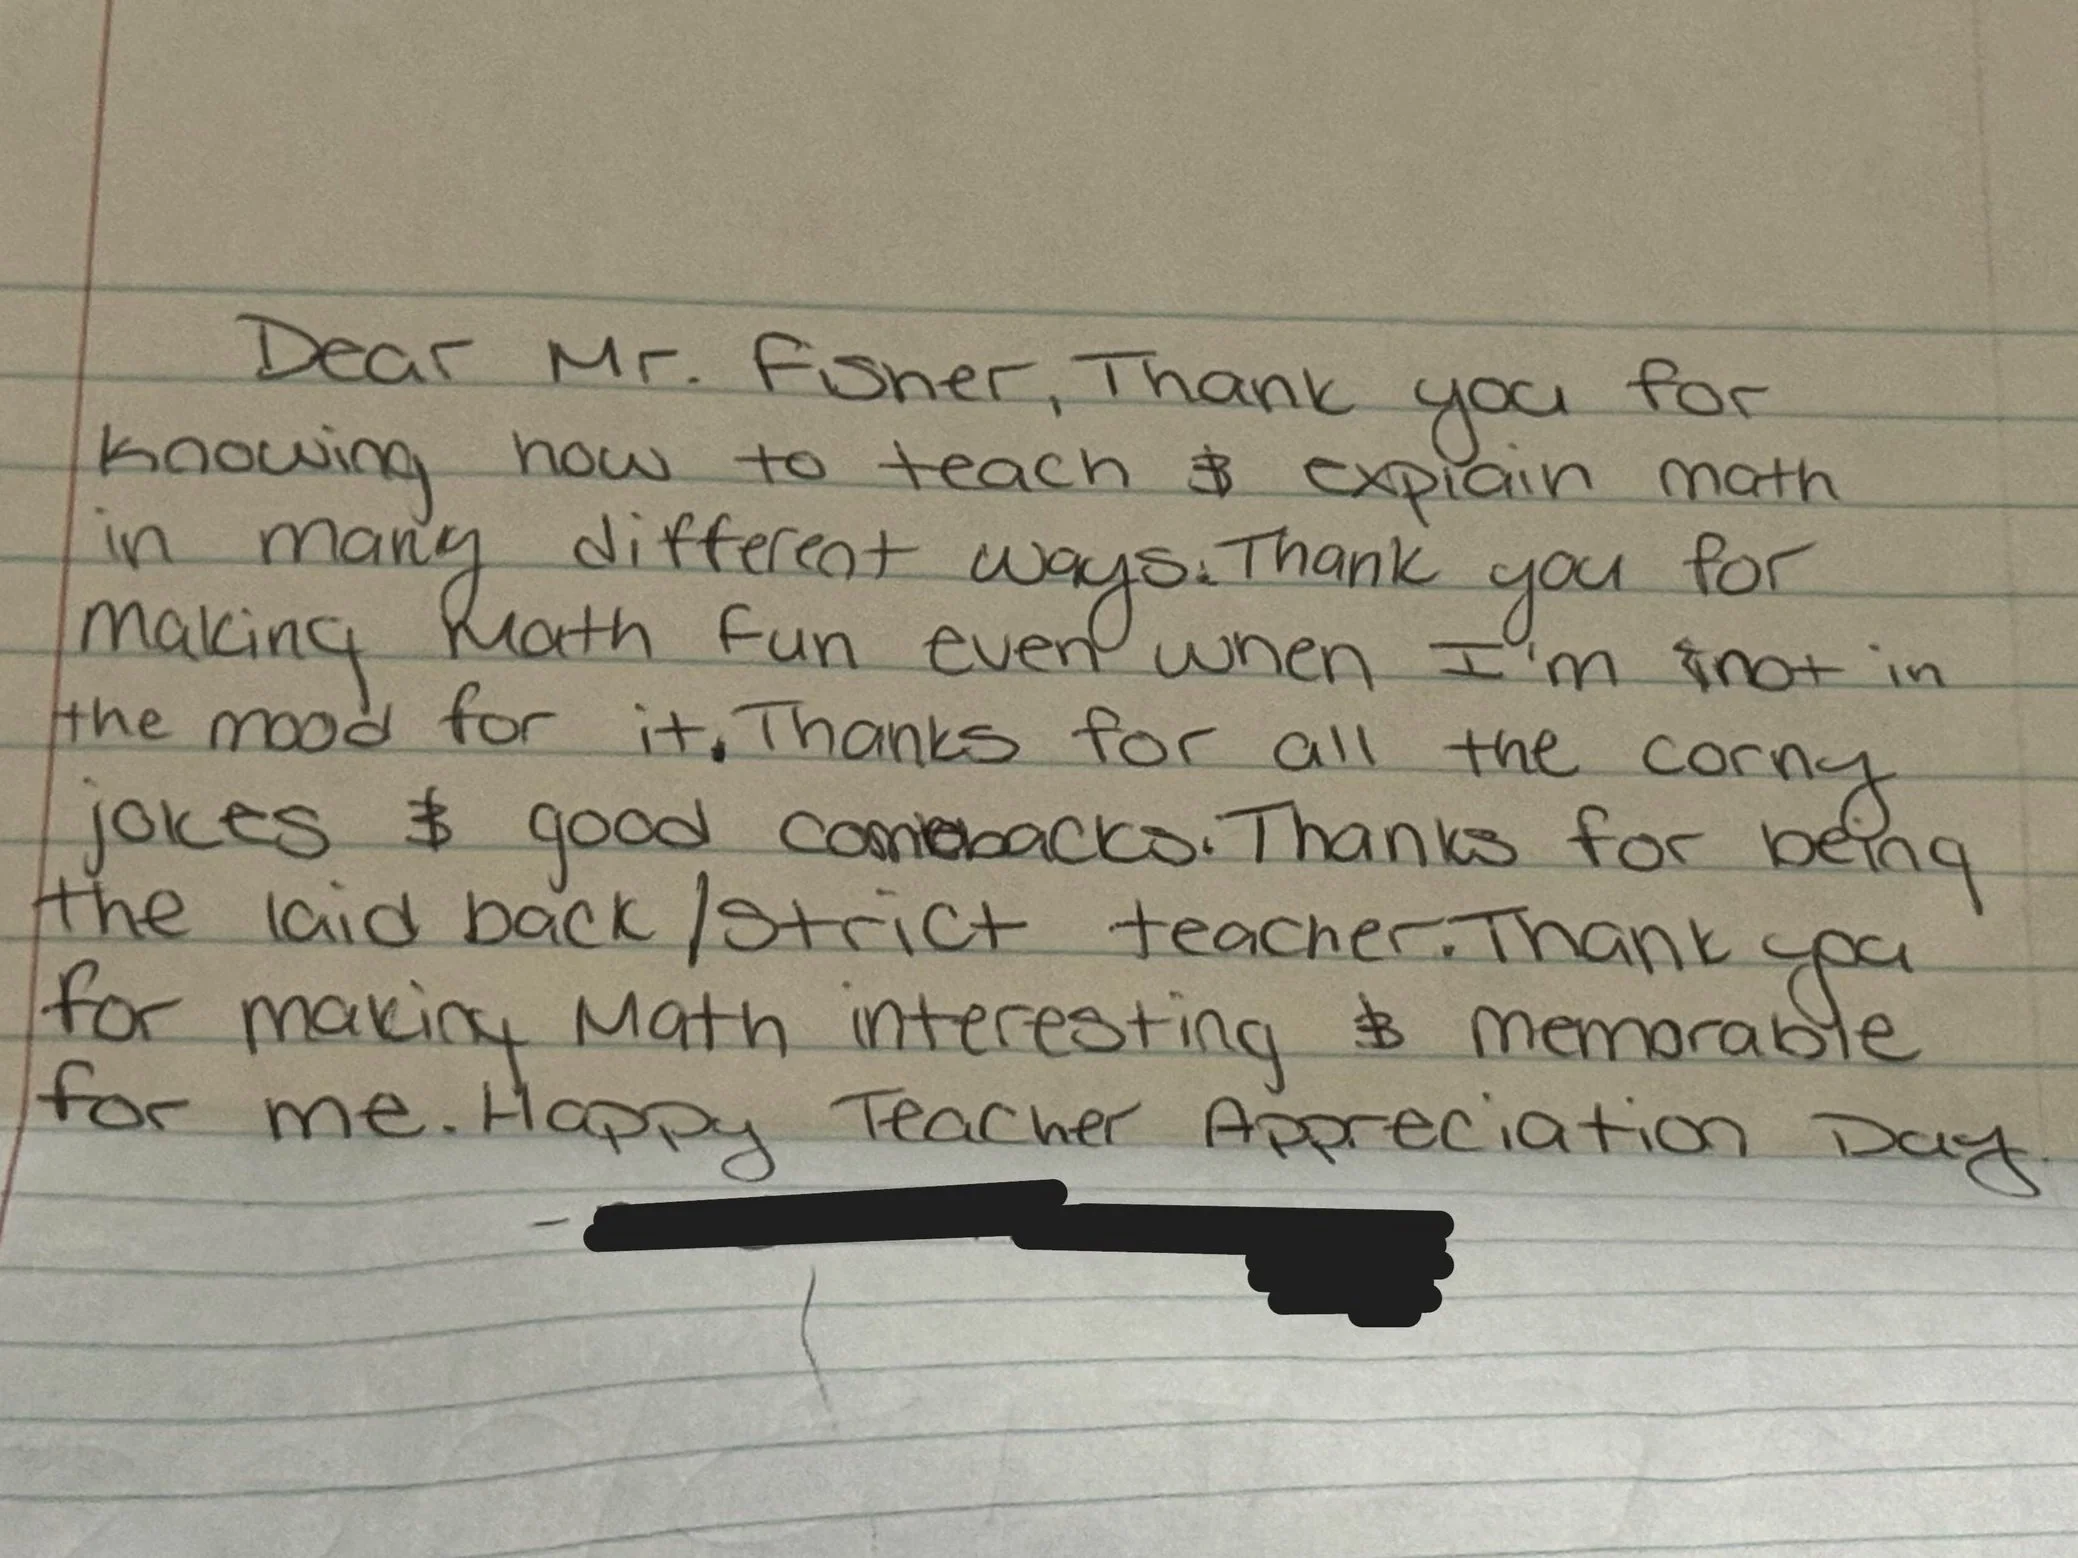 Dear Mr. Fisher, Thank you for
knowing how to teach & explain math
in many different ways. Thank you for
making Math fun even when I'm not in
the mood for it. Thanks for all the corny
jokes & good comebacks. Thanks for being
the laid back/strict teacher. Thank you
for making Math interesting & memorable
for me. Happy Teacher Appreciation Day.
-